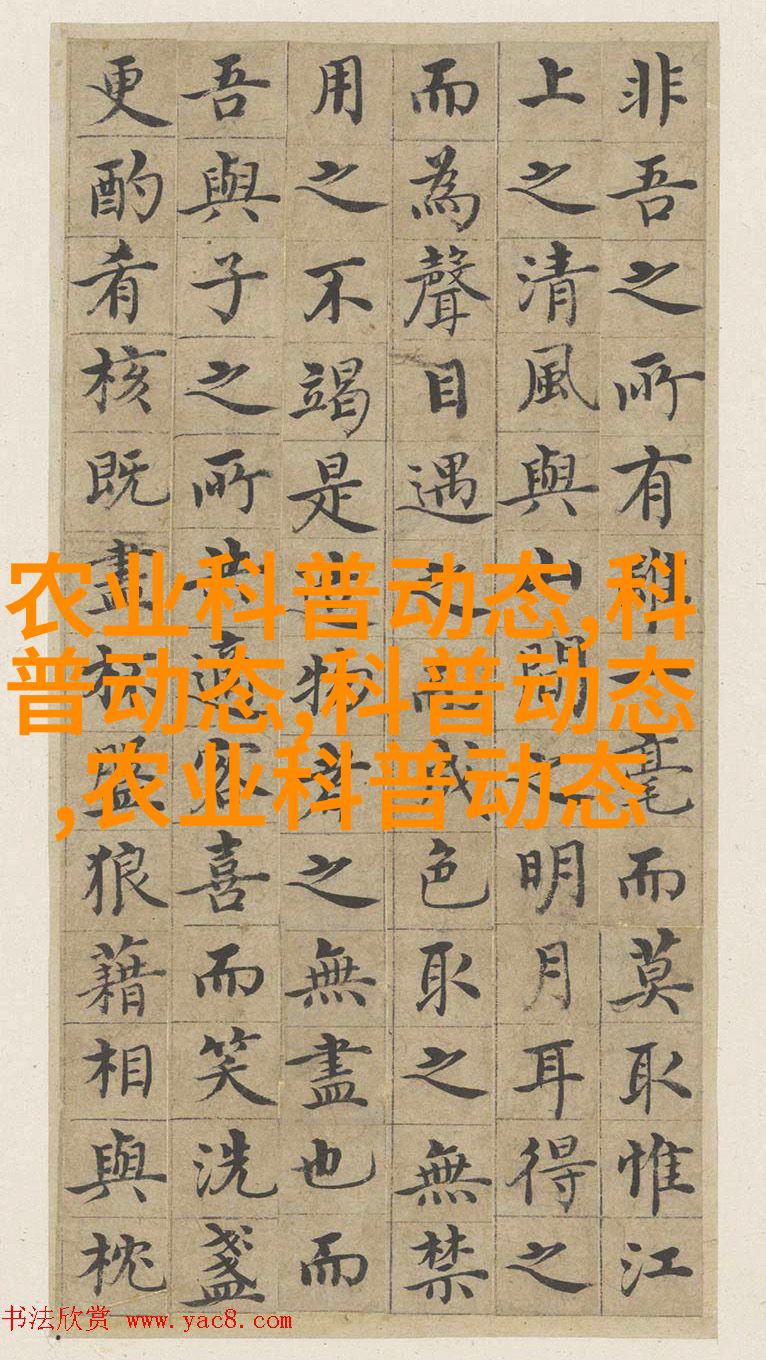 非吾之所有雖一毫而莫取惟江
上之清風與山間之明月耳得之
而為聲目遇之而成色取之無禁
用之不竭是造物者之無盡也而
吾與子之所共適客喜而笑洗盞
更酌肴核既盡杯盤狼藉相與枕
农业科普动态,科
普动态,科普动态
,农业科普动态
书法欣赏 www.yac8.com